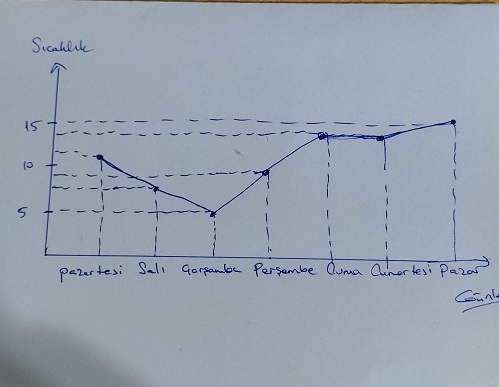 Sıcaklık
15
10
5
pazartesi Salı Çarşamba Perşembe Cuma Cumartesi Pazar